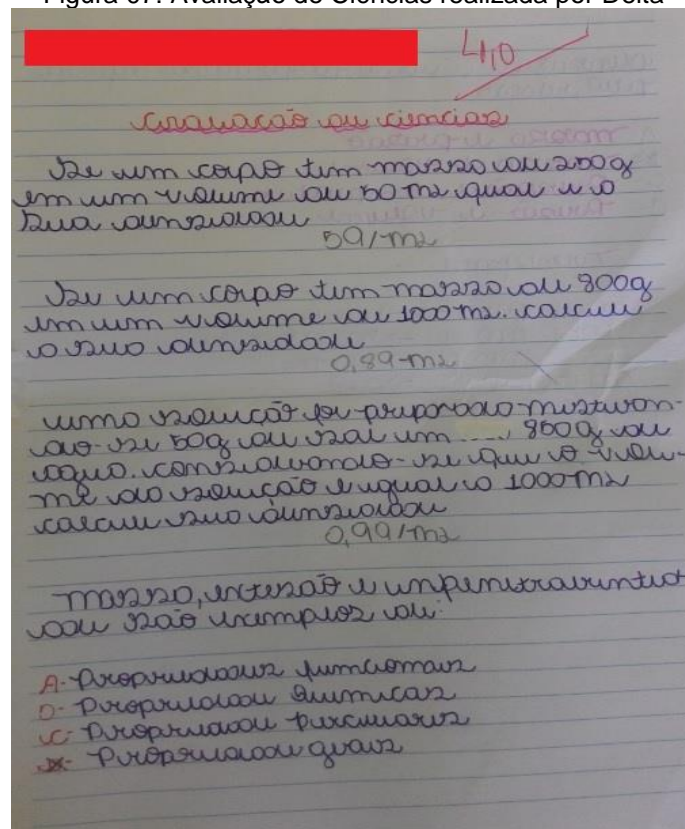 Figura 67: Avaliação de Ciências realizada por Delta
4,0
avaliação de ciencias
Se um corpo tem massa de 250g
em um volume de 50 ml qual e a
Sua densidade
5g/ml
Se um corpo tem massa de 800g
em um volume de 1000 ml. calcule
a sua densidade
0,8g ml
uma solução foi preparada misturan-
do-se 50g de sal em .... 850g de
agua. considerando-se que o volu-
me da solução e igual a 1000 ml
calcule sua densidade
0,9g/ml
massa, extensão e
são exemplos de:
A- Propriedades funcionais
D- Propriedade Quimicas
C- Propriedade
Propriedade gerais